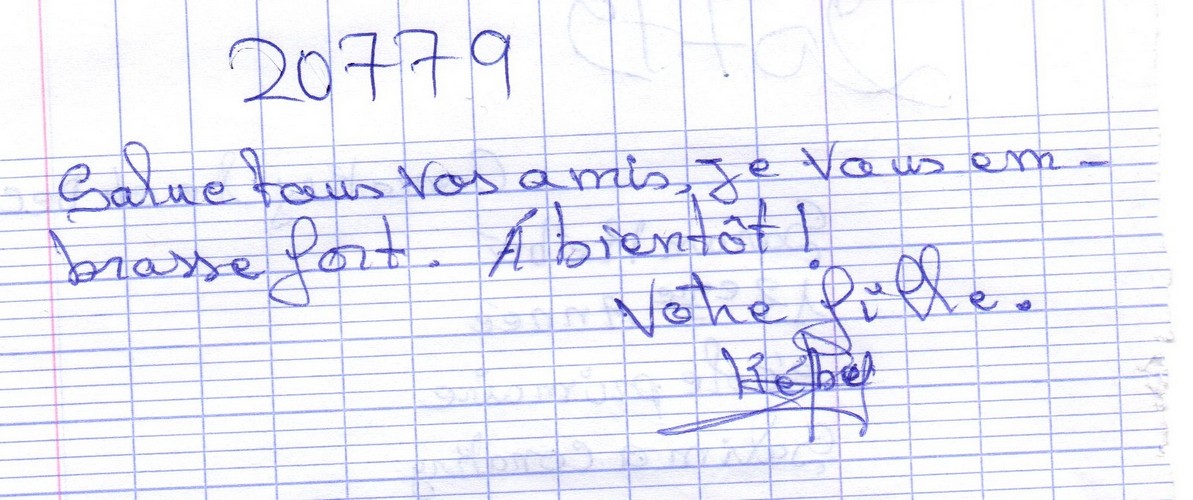 20779
Salue tous vos amis, je vous em-
brasse fort. Á bientôt!
Votre fille.